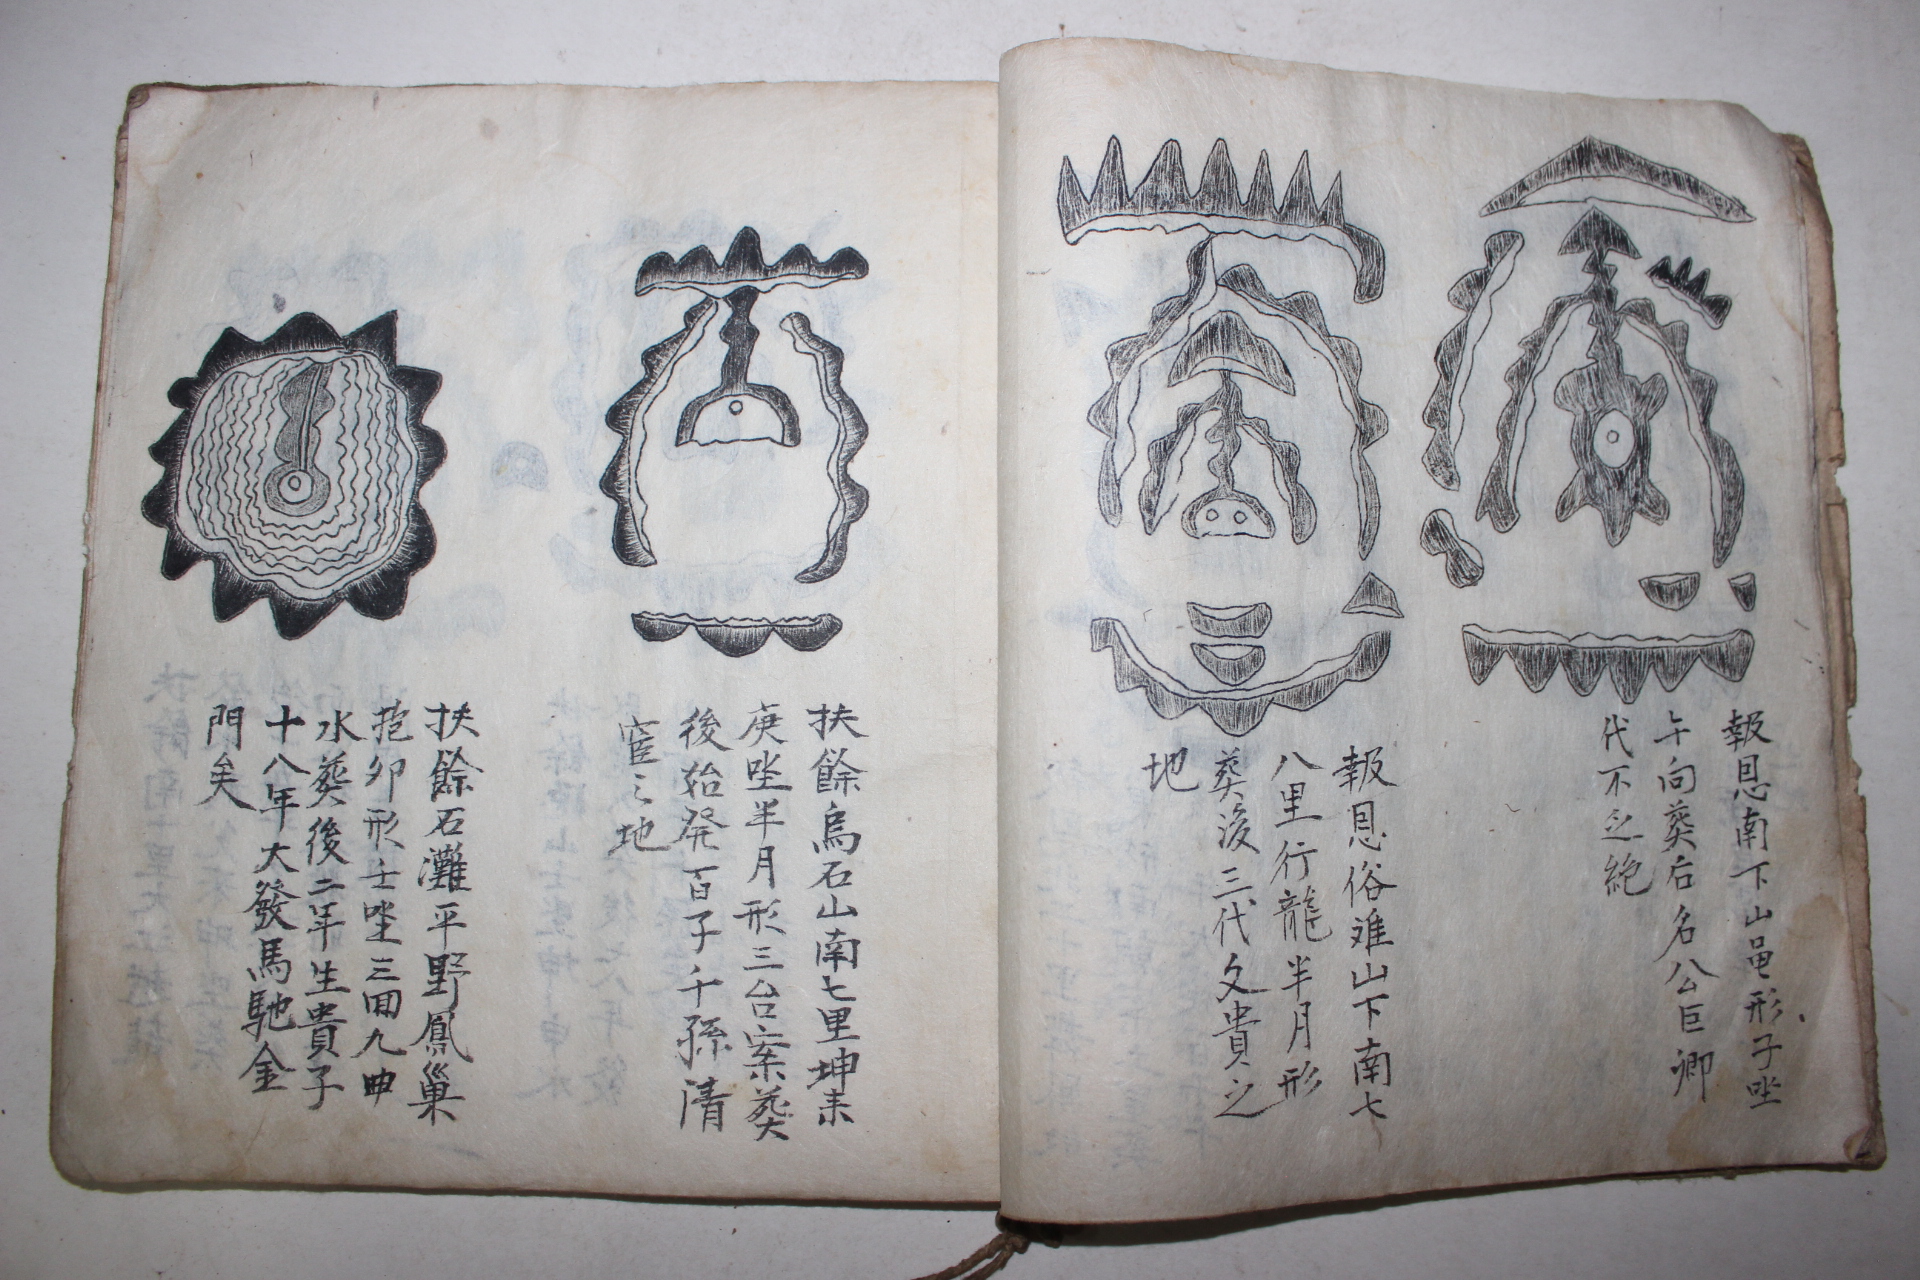 報恩南下山黽形子坐
午向葬后名公巨卿
代不乏絶
報恩俗难山下南七
八里行龍半月形
葬後三代文貴之
地
扶餘烏石山南七里坤来
庚坐半月形三台案葬
後始発百子千孫清
宦之地
扶餘石灘平野鳳巢
抱卯形壬坐三回九曲
水葬後二年生貴子
十八年大發馬馳金
門矣